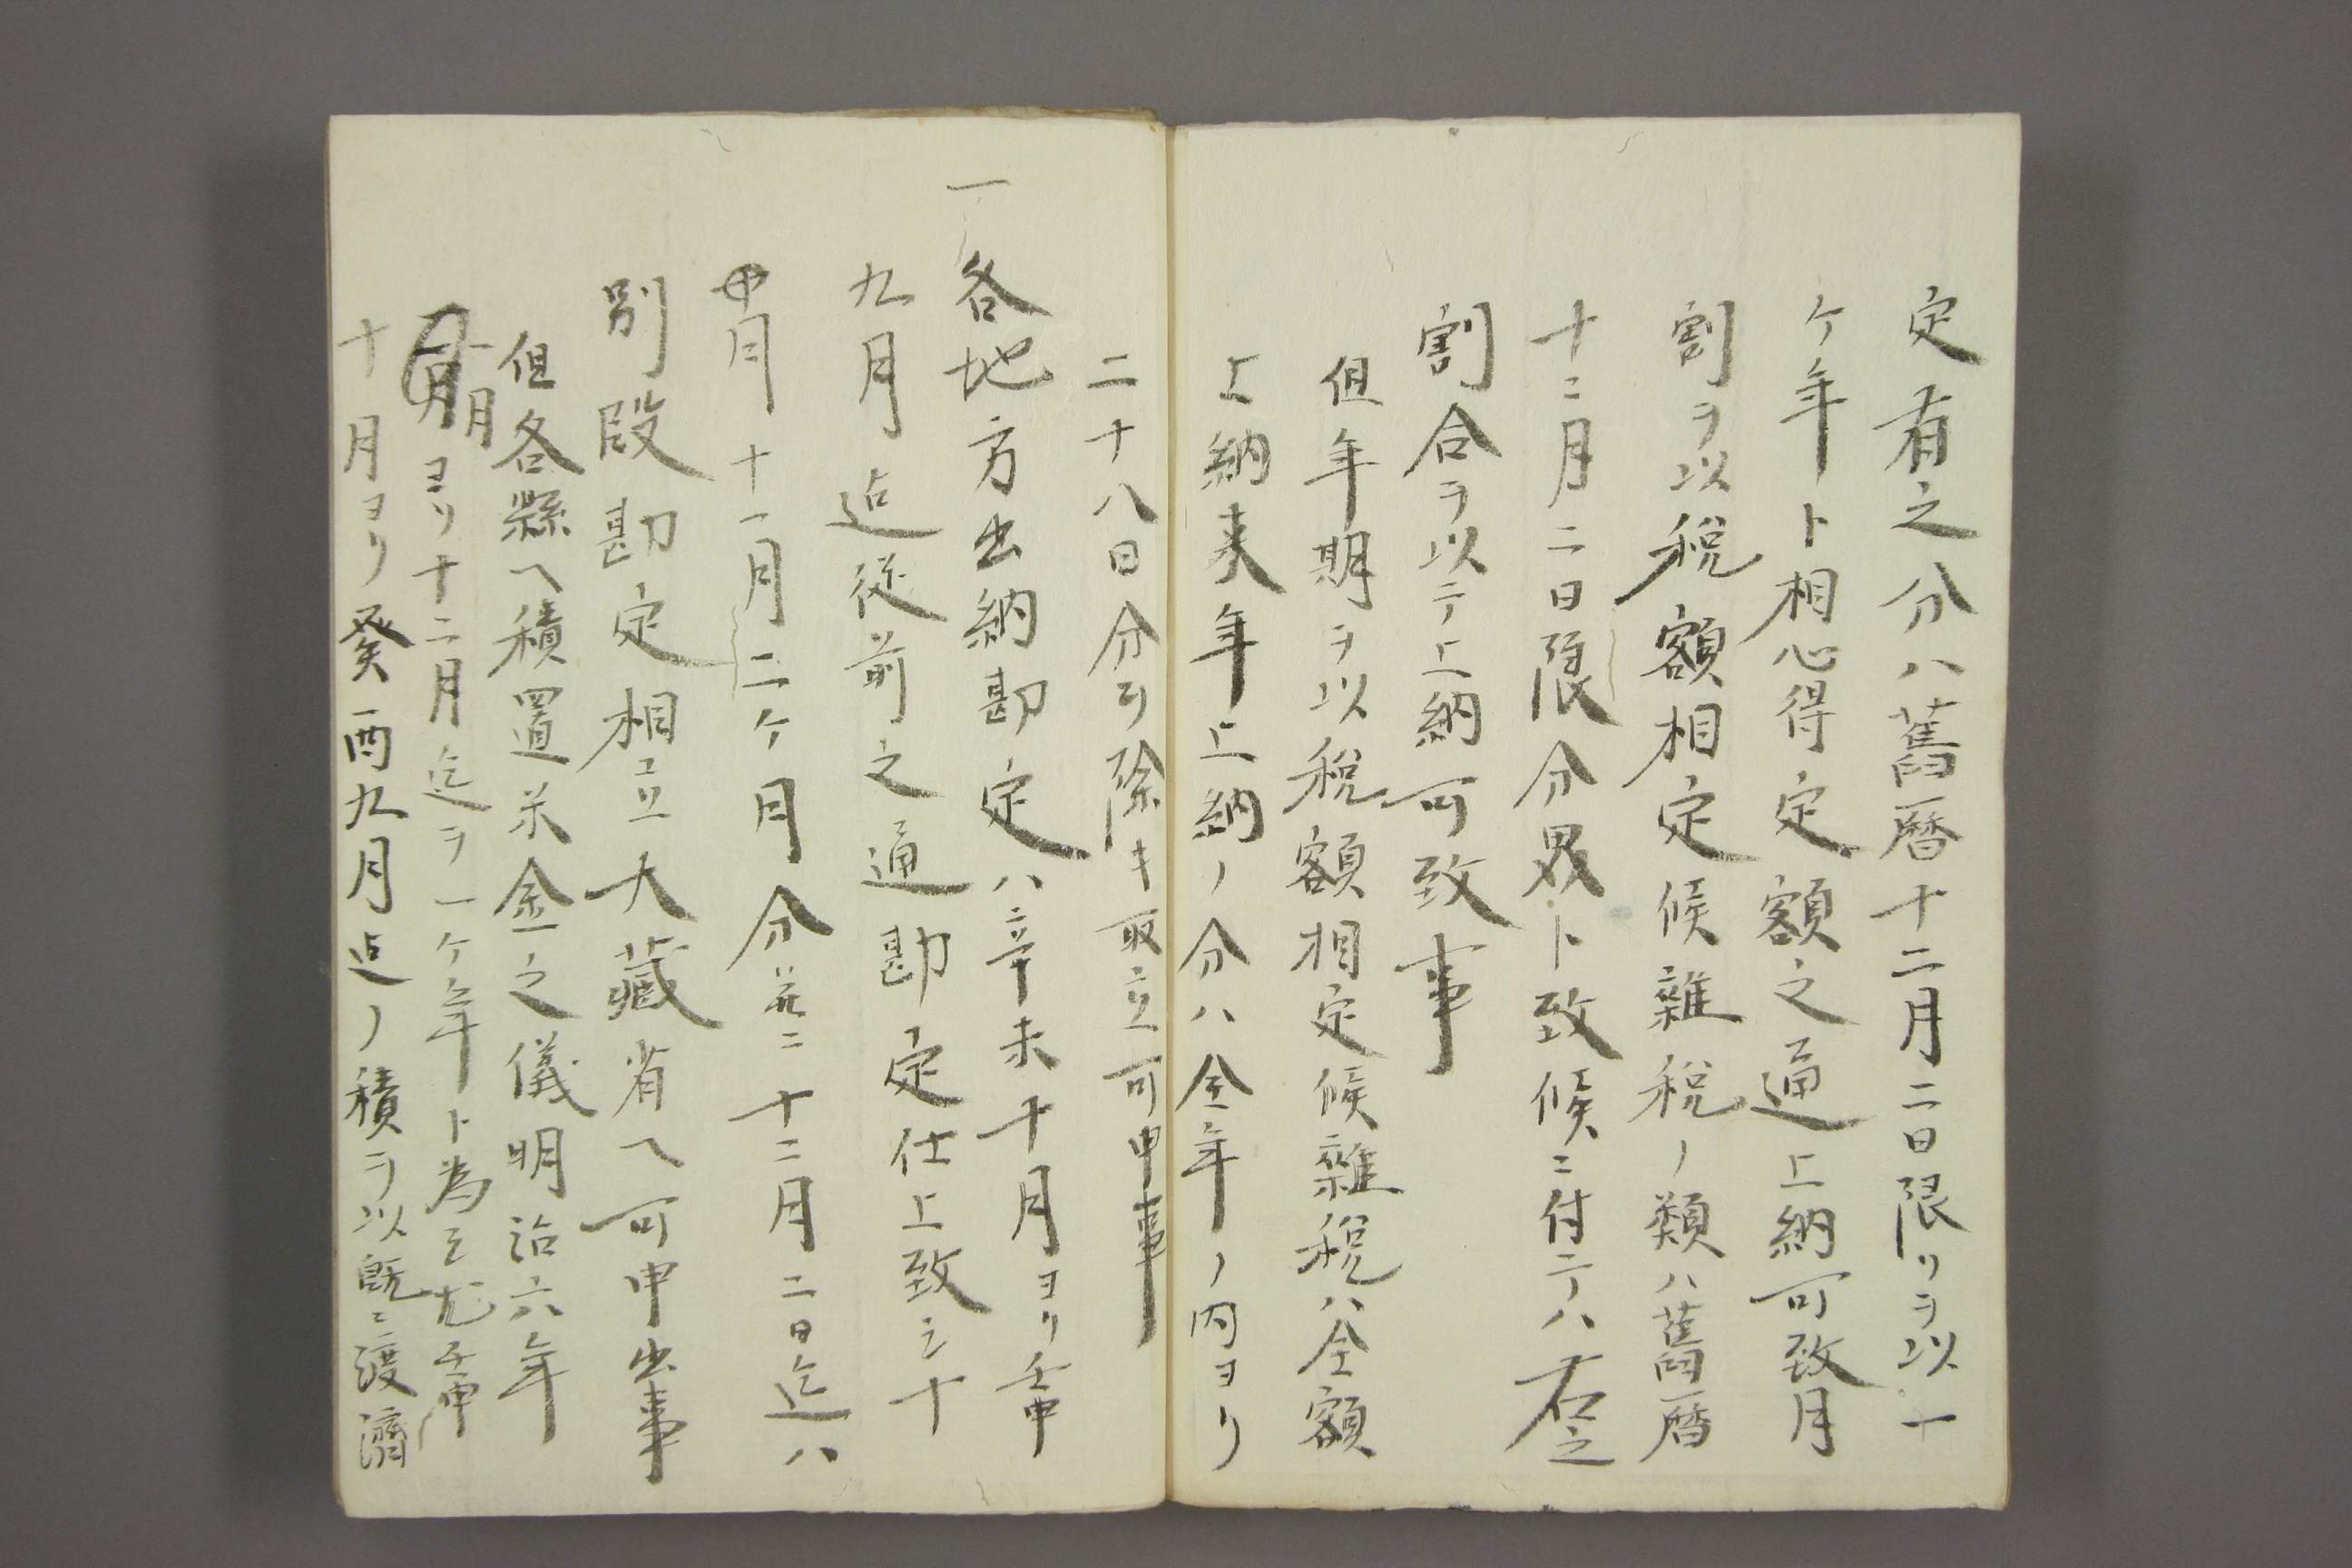 定有之分ハ舊暦十二月二日限リヲ以一
ケ年ト相心得定額之通上納可致月
割ヲ以税額相定候雜税ノ類ハ舊暦
十二月二日限分界ト致候ニ付テハ右之
割合ヲ以テ上納可致事
但年期ヲ以税額相定候雜税ハ全額
上納来年上納ノ分ハ全年ノ内ヨリ
二十八日分ヲ除キ取立可申事
一各地方出納勘定ハ辛未十月ヨリ壬申
九月迄従前之通勘定仕上致シ十
月十一月二ケ月分并ニ十二月二日迄ハ
別段勘定相立大藏省ヘ可申出事
但各縣ヘ積置米金之儀明治六年
一月ヨリ十二月迄ヲ一ケ年ト為シ尤壬申
十月ヨリ癸酉九月迄ノ積ヲ以既ニ渡濟